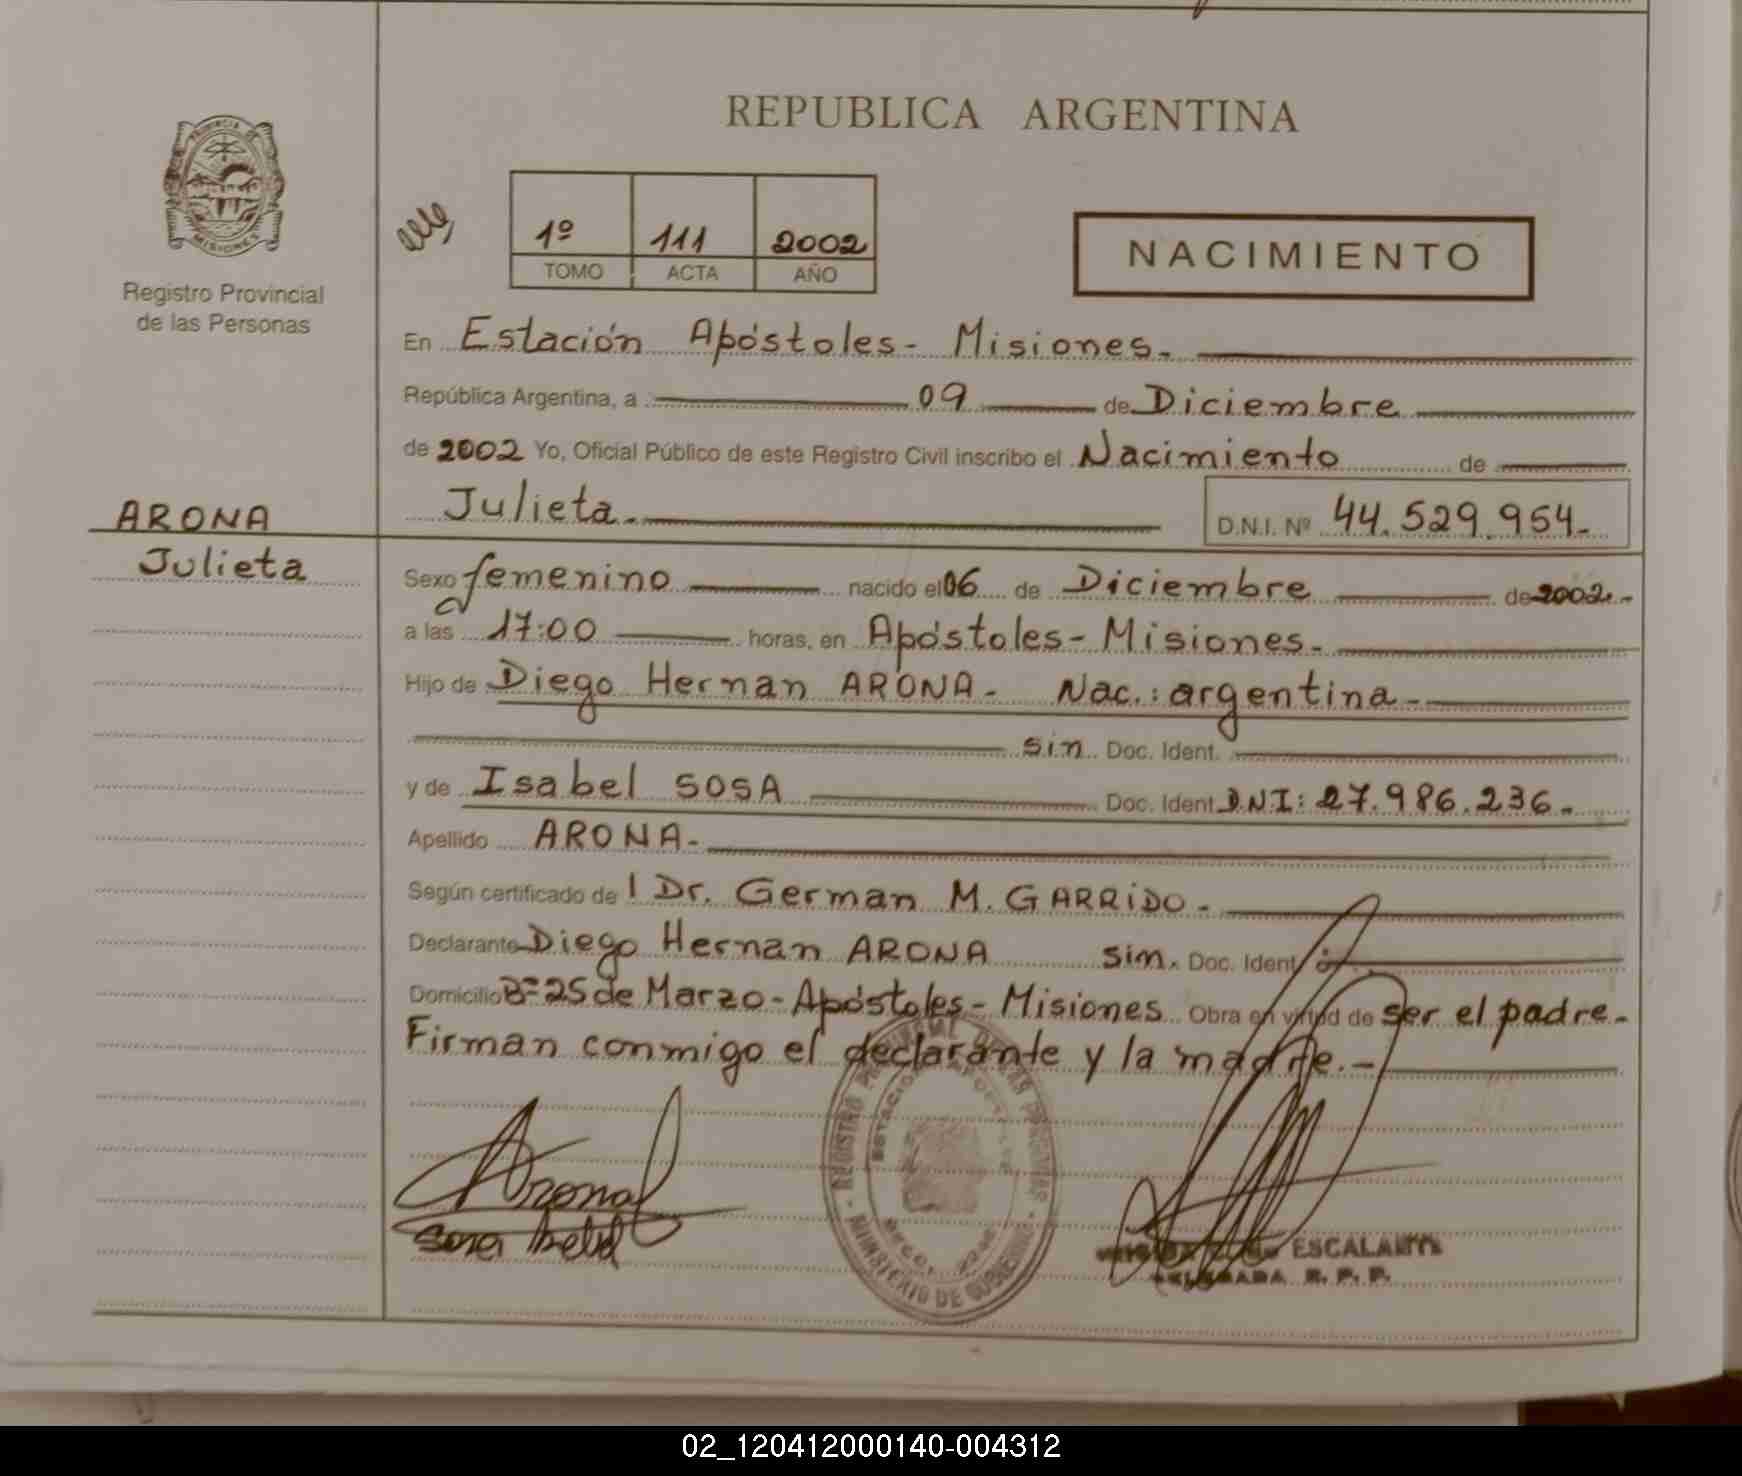 REPUBLICA ARGENTINA
PROVINCIA DE
MISIONES
Registro Provincial
de las Personas
1º 111 2002
TOMO ACTA AÑO
NACIMIENTO
En Estación Apóstoles- Misiones.
República Argentina, a 09 de Diciembre
de 2002 Yo, Oficial Público de este Registro Civil inscribo el Nacimiento de
Julieta. D.N.I. Nº 44.529.954-
ARONA
Julieta
Sexo femenino nacido el 06 de Diciembre de 2002.-
a las 17:00 horas, en Apóstoles- Misiones.
Hijo de Diego Hernan ARONA- Nac.: argentina-
sin Doc. Ident.
y de Isabel SOSA Doc. Ident. D.N.I: 27.986.236.
Apellido ARONA-
Según certificado de l Dr. German M. GARRIDO-
Declarante Diego Hernan ARONA sin. Doc. Ident
Domicilio Bº 25 de Marzo- Apóstoles- Misiones Obra en virtud de ser el padre.
Firman conmigo el declarante y la madre.-
Arona
Sosa Isabel
REGISTRO PROVINCIAL DE LAS PERSONAS
ESTACION APOSTOLES
MINISTERIO DE GOBIERNO
ESCALANTE
DELEGADA R. P. P.
02_120412000140-004312